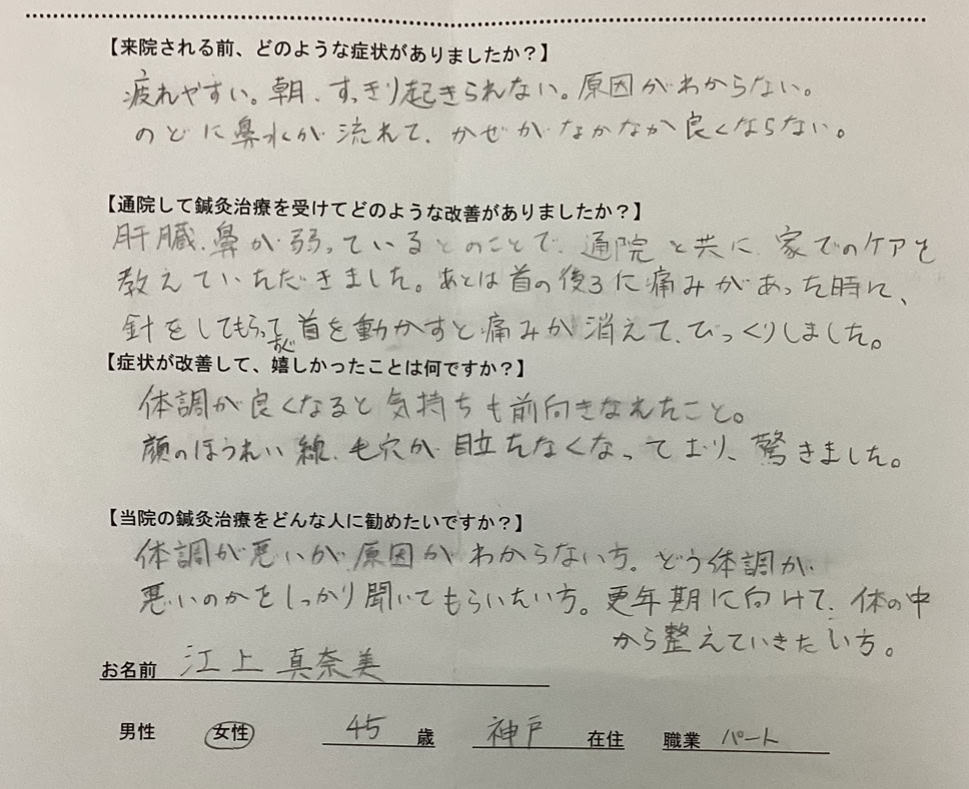 【来院される前、どのような症状がありましたか？】
疲れやすい。朝、すっきり起きられない。原因がわからない。
のどに鼻水が流れて、かぜがなかなか良くならない。
【通院して鍼灸治療を受けてどのような改善がありましたか？】
肝臓、鼻が弱っているとのことで、通院と共に、家でのケアを
教えていただきました。あとは首の後ろに痛みがあった時に、
針をしてもらって首を動かすと痛みが消えて、びっくりしました。
【症状が改善して、嬉しかったことは何ですか？】
体調が良くなると気持ちも前向きなれたこと。
顔のほうれい線、毛穴が目立たなくなっており、驚きました。
【当院の鍼灸治療をどんな人に勧めたいですか？】
体調が悪いが原因がわからない方。どう体調が
悪いのかをしっかり聞いてもらいたい方。更年期に向けて、体の中
から整えていきたい方。
お名前 江上 真奈美
男性 女性 45 歳 神戸 在住 職業 パート